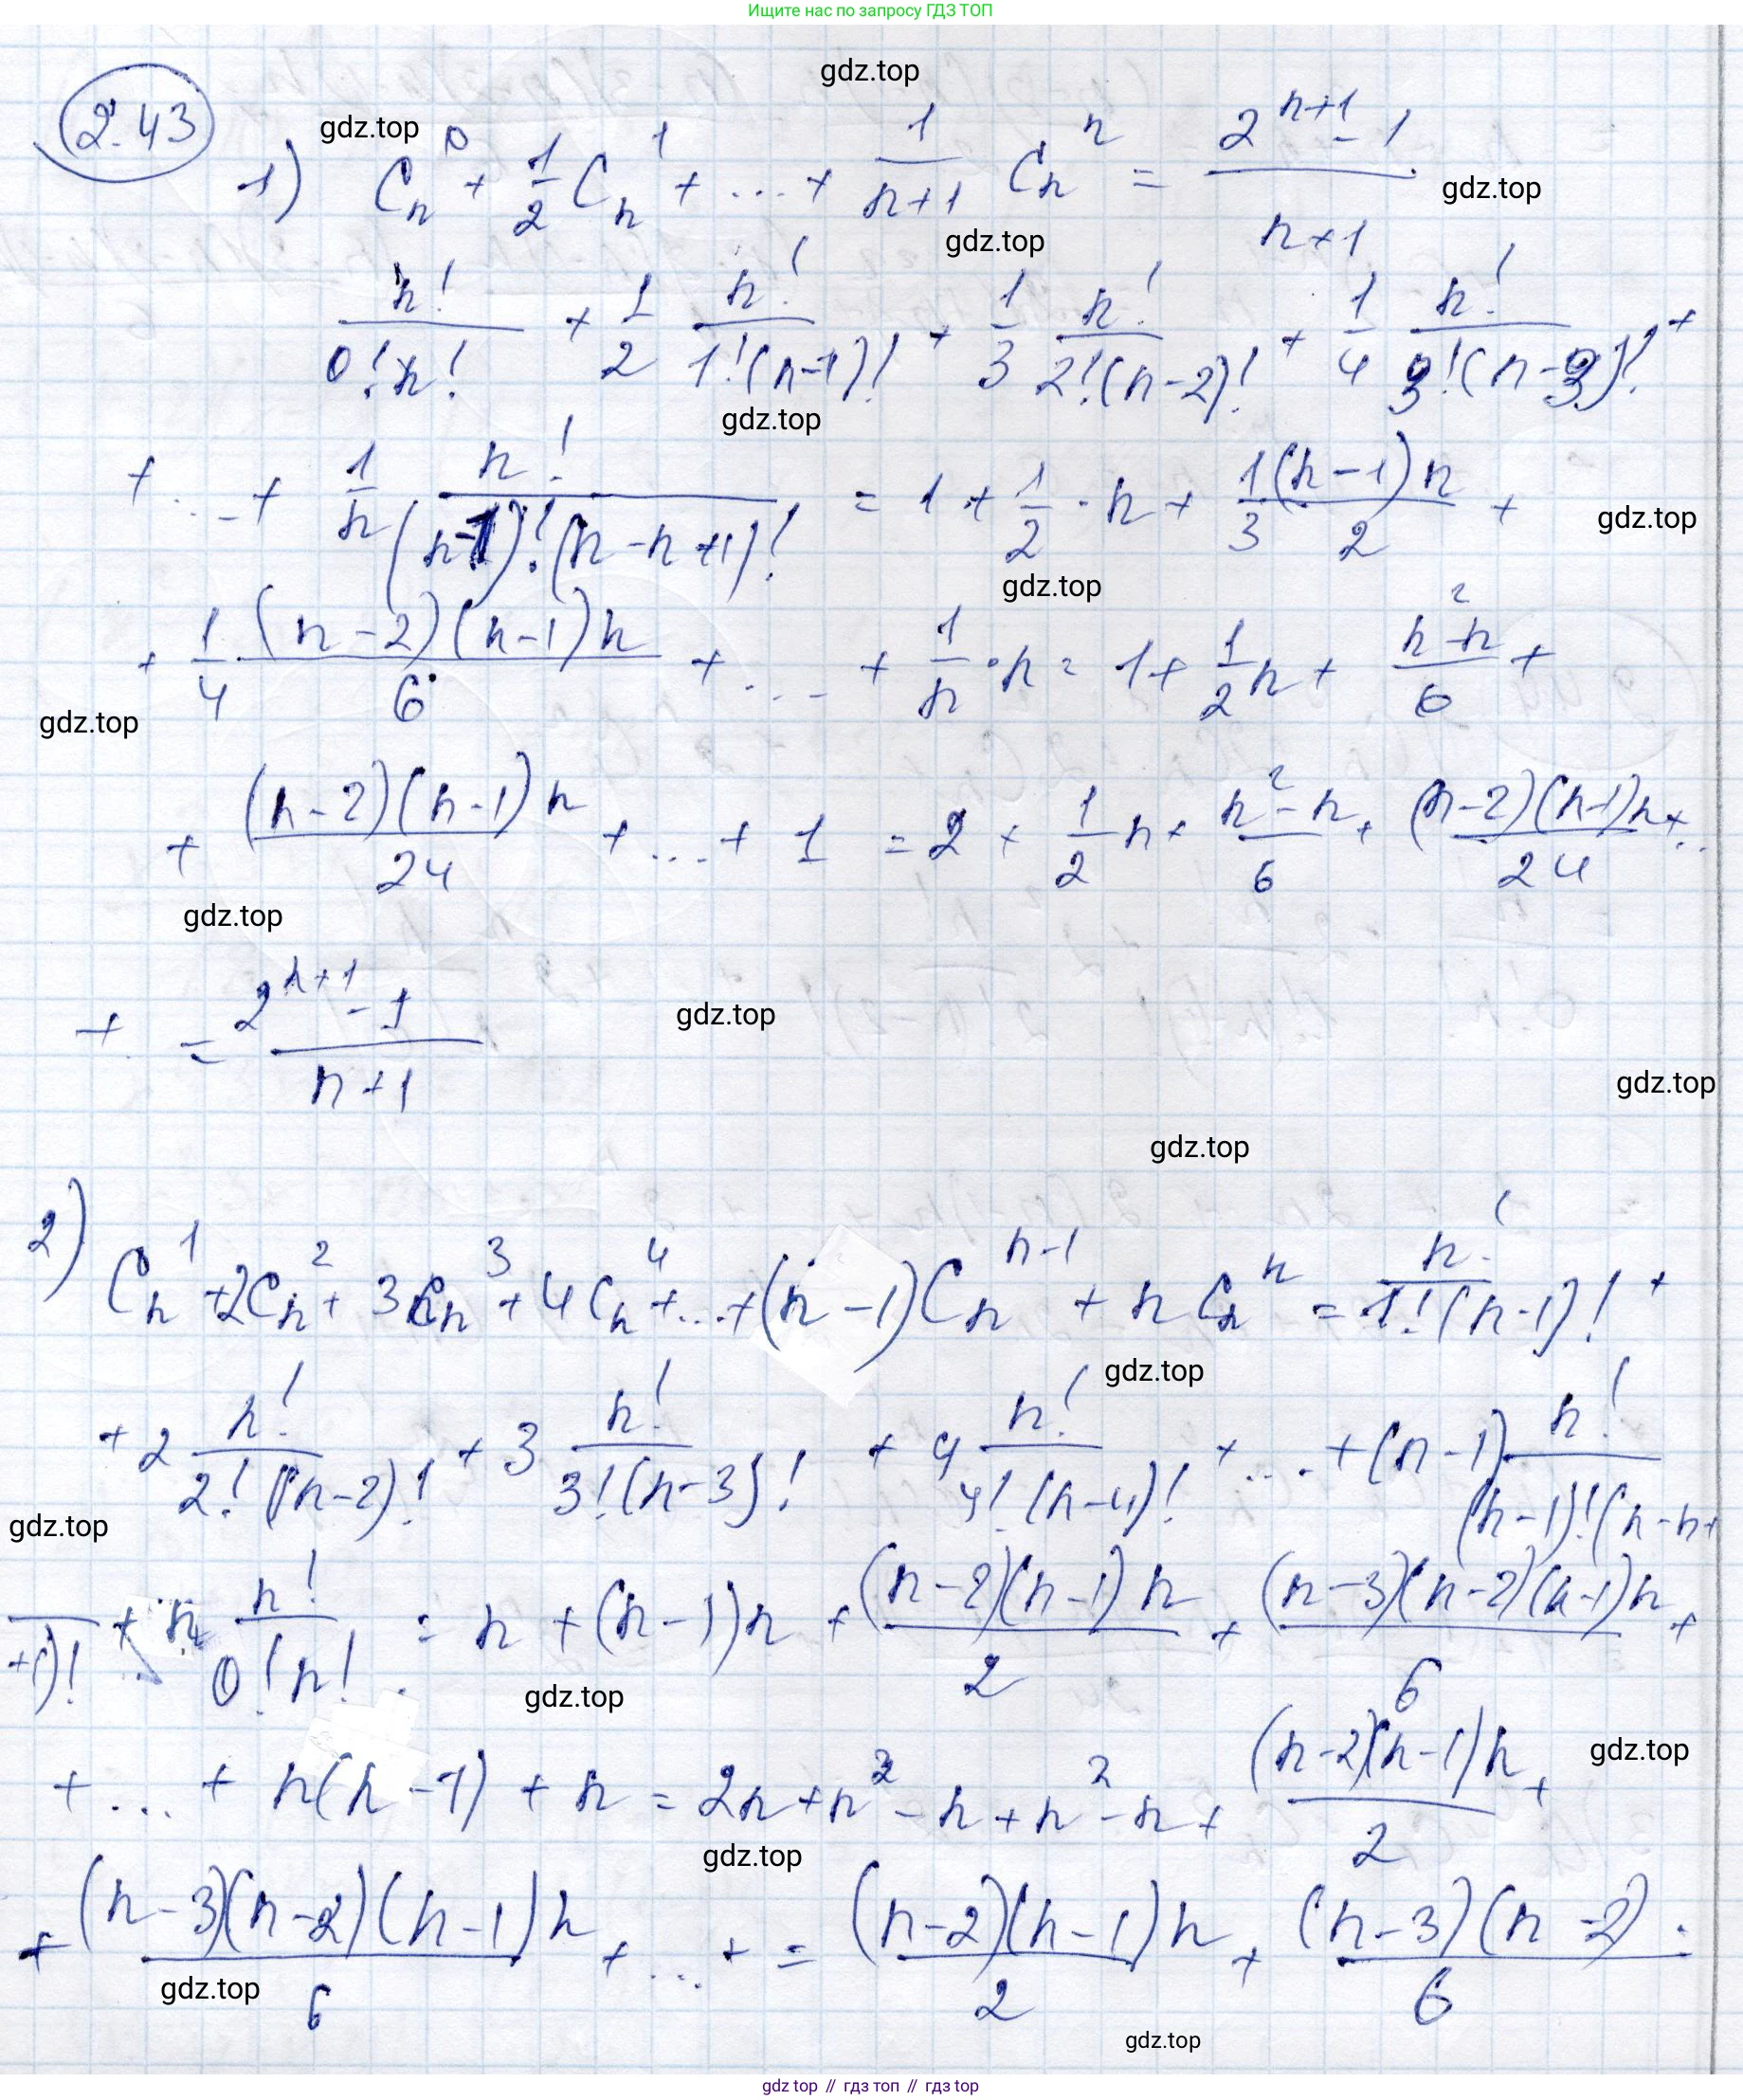 Ищите нас по запросу ГДЗ ТОП
gdz.top
2.43 gdz.top
1) C_n^0 + 1/2 C_n^1 + ... + 1/(n+1) C_n^n = (2^(n+1) - 1)/(n+1)
gdz.top
gdz.top
n!/(0! n!) + 1/2 n!/(1!(n-1)!) + 1/3 n!/(2!(n-2)!) + 1/4 n!/(3!(n-3)!) +
gdz.top
+ ... + 1/n n!/((n-1)!(n-n+1)!) = 1 + 1/2 · n + 1/3 (n-1)n/2 +
gdz.top
gdz.top
+ 1/4 · (n-2)(n-1)n/6 + ... + 1/n · n = 1 + 1/2 n + (n^2-n)/6 +
gdz.top
+ (n-2)(n-1)n/24 + ... + 1 = 2 + 1/2 n + (n^2-n)/6 + (n-2)(n-1)n/24 + ..
gdz.top
+ = (2^(n+1) - 1)/(n+1)
gdz.top
gdz.top
gdz.top
2) C_n^1 + 2C_n^2 + 3C_n^3 + 4C_n^4 + ... + (n-1)C_n^(n-1) + n C_n^n = n!/(1!(n-1)!) +
gdz.top
+ 2 n!/(2!(n-2)!) + 3 n!/(3!(n-3)!) + 4 n!/(4!(n-4)!) + ... + (n-1) n!/((n-1)!(n-n+
gdz.top
+1)! + n n!/(0! n!) = n + (n-1)n + (n-2)(n-1)n/2 + (n-3)(n-2)(n-1)n/6 +
gdz.top
+ ... + n(n-1) + n = 2n + n^2 - n + n^2 - n + (n-2)(n-1)n/2 +
gdz.top
gdz.top
+ (n-3)(n-2)(n-1)n/6 + ... + = (n-2)(n-1)n/2 + (n-3)(n-2)·/6
gdz.top
gdz.top
gdz top // гдз топ // gdz top